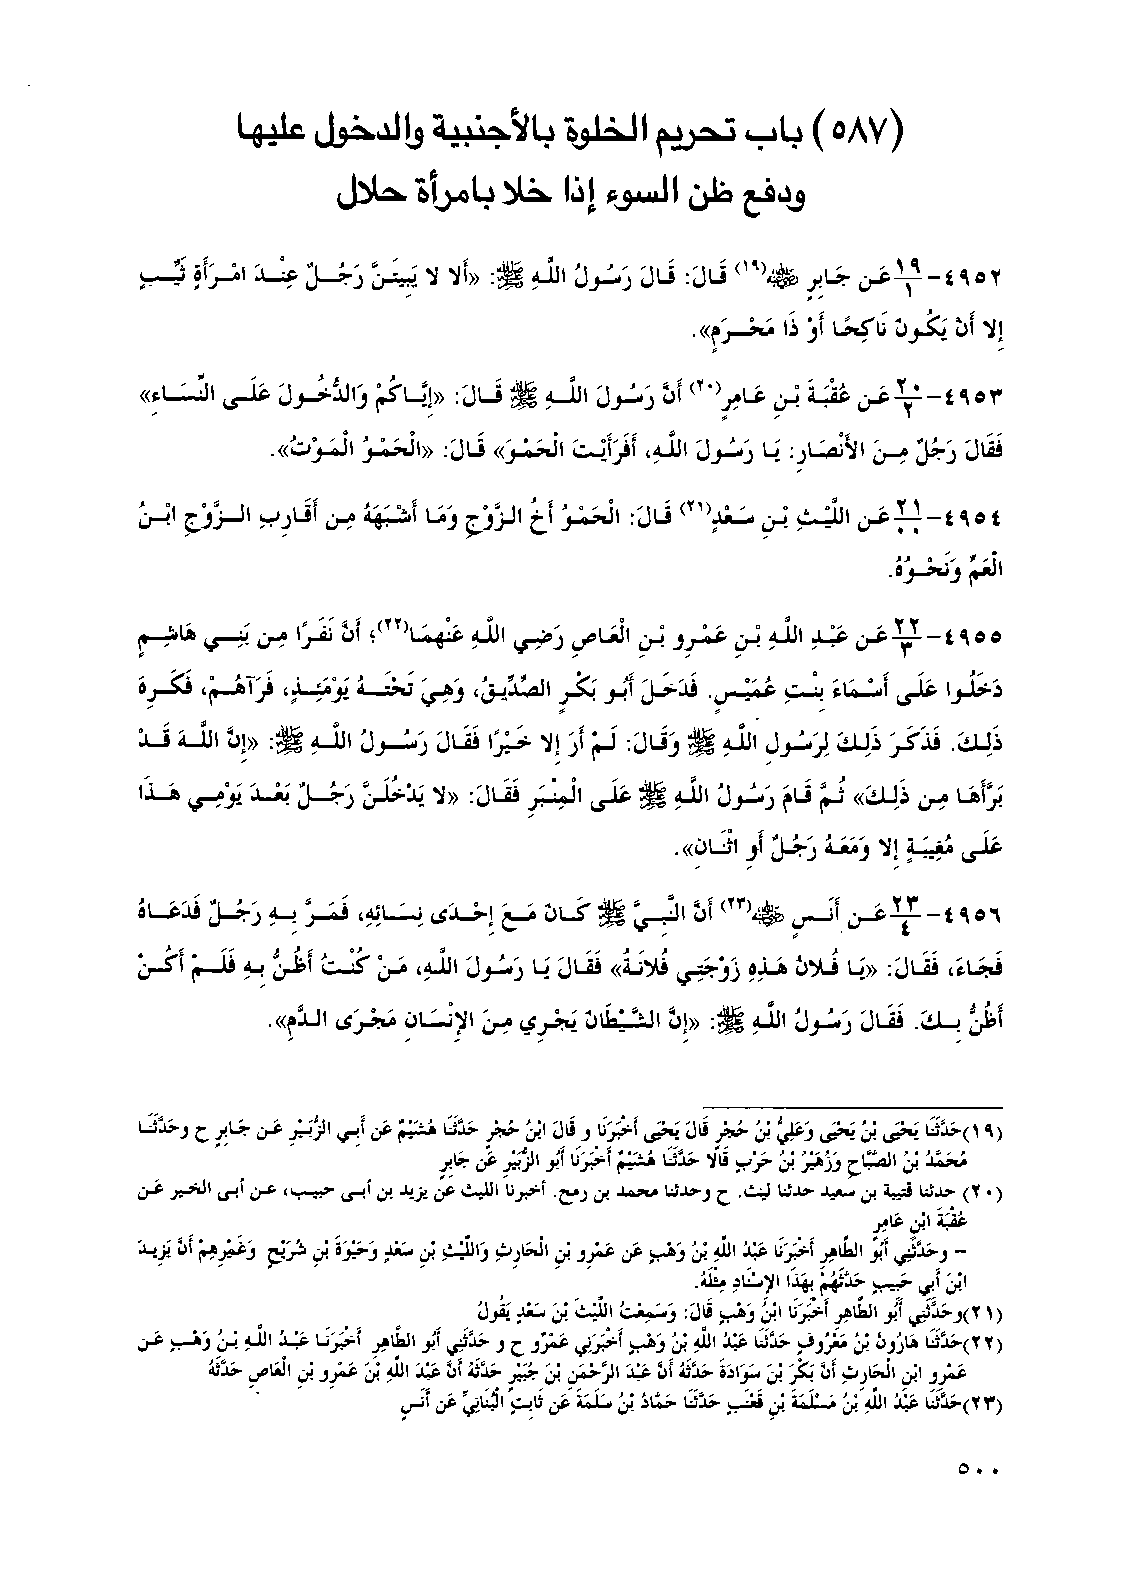 (٥٨٧) باب تحريم الخلوة بالأجنبية والدخول عليها
ودفع ظن السوء إذا خلا بامرأة حلال
٤٩٥٢- ١٩/١ عَن جَابِرٍ ﷺ(١٩) قَالَ: قَالَ رَسُولُ اللَّهِ ﷺ: «أَلا لا يَبِيتَنَّ رَجُلٌ عِنْدَ امْرَأَةٍ ثَيِّبٍ
إِلا أَنْ يَكُونَ نَاكِحًا أَوْ ذَا مَحْرَمٍ».
٤٩٥٣- ٢٠/٢ عَن عُقْبَةَ بْنِ عَامِرٍ(٢٠) أَنَّ رَسُولَ اللَّهِ ﷺ قَالَ: «إِيَّاكُمْ وَالدُّخُولَ عَلَى النِّسَاءِ»
فَقَالَ رَجُلٌ مِنَ الأَنْصَارِ: يَا رَسُولَ اللَّهِ، أَفَرَأَيْتَ الْحَمْوَ» قَالَ: «الْحَمْوُ الْمَوْتُ».
٤٩٥٤- ٢١/٠٠ عَن اللَّيْثِ بْنِ سَعْدٍ(٢١) قَالَ: الْحَمْوُ أَخُ الزَّوْجِ وَمَا أَشْبَهَهُ مِن أَقَارِبِ الزَّوْجِ ابْنُ
الْعَمِّ وَنَحْوُهُ.
٤٩٥٥- ٢٢/٣ عَن عَبْدِ اللَّهِ بْنِ عَمْرِو بْنِ الْعَاصِ رَضِي اللَّهُ عَنْهمَا(٢٢)؛ أَنَّ نَفَرًا مِن بَنِي هَاشِمٍ
دَخَلُوا عَلَى أَسْمَاءَ بِنْتِ عُمَيْسٍ. فَدَخَلَ أَبُو بَكْرٍ الصِّدِّيقُ، وَهِيَ تَحْتَهُ يَوْمَئِذٍ، فَرَآهُمْ، فَكَرِهَ
ذَلِكَ. فَذَكَرَ ذَلِكَ لِرَسُولِ اللَّهِ ﷺ وَقَالَ: لَمْ أَرَ إِلا خَيْرًا فَقَالَ رَسُولُ اللَّهِ ﷺ: «إِنَّ اللَّهَ قَدْ
بَرَّأَهَا مِن ذَلِكَ» ثُمَّ قَامَ رَسُولُ اللَّهِ ﷺ عَلَى الْمِنْبَرِ فَقَالَ: «لا يَدْخُلَنَّ رَجُلٌ بَعْدَ يَوْمِي هَذَا
عَلَى مُغِيبَةٍ إِلا وَمَعَهُ رَجُلٌ أَوِ اثْنَانِ».
٤٩٥٦- ٢٣/٤ عَن أَنَسٍ (٢٣) أَنَّ النَّبِيَّ ﷺ كَانَ مَعَ إِحْدَى نِسَائِهِ، فَمَرَّ بِهِ رَجُلٌ فَدَعَاهُ
فَجَاءَ، فَقَالَ: «يَا فُلانُ هَذِهِ زَوْجَتِي فُلانَةُ» فَقَالَ يَا رَسُولَ اللَّهِ، مَنْ كُنْتُ أَظُنُّ بِهِ فَلَمْ أَكُنْ
أَظُنُّ بِكَ. فَقَالَ رَسُولُ اللَّهِ ﷺ: «إِنَّ الشَّيْطَانَ يَجْرِي مِنَ الإِنْسَانِ مَجْرَى الدَّمِ».
(١٩)حَدَّثَنَا يَحْيَى بْنُ يَحْيَى وَعَلِيُّ بْنُ حُجْرٍ قَالَ يَحْيَى أَخْبَرَنَا و قَالَ ابْنُ حُجْرٍ حَدَّثَنَا هُشَيْمٌ عَن أَبِي الزُّبَيْرِ عَن جَابِرٍ ح وحَدَّثَنَا
مُحَمَّدُ بْنُ الصَّبَّاحِ وَزُهَيْرُ بْنُ حَرْبٍ قَالا حَدَّثَنَا هُشَيْمٌ أَخْبَرَنَا أَبُو الزُّبَيْرِ عَن جَابِرٍ
(٢٠) حدثنا قتيبة بن سعيد حدثنا ليث. ح وحدثنا محمد بن رمح. أخبرنا الليث عن يزيد بن أبى حبيب، عن أبى الخير عن
عُقْبَةَ ابْنِ عَامِرٍ
- وحَدَّثَنِي أَبُو الطَّاهِرِ أَخْبَرَنَا عَبْدُ اللَّهِ بْنُ وَهْبٍ عَن عَمْرِو بْنِ الْحَارِثِ وَاللَّيْثِ بْنِ سَعْدٍ وَحَيْوَةَ بْنِ شُرَيْحٍ وَغَيْرِهِمْ أَنَّ يَزِيدَ
ابْنَ أَبِي حَبِيبٍ حَدَّثَهُمْ بِهَذَا الإِسْنَادِ مِثْلَهُ.
(٢١)وحَدَّثَنِي أَبُو الطَّاهِرِ أَخْبَرَنَا ابْنُ وَهْبٍ قَالَ: وَسَمِعْتُ اللَّيْثَ بْنَ سَعْدٍ يَقُولُ
(٢٢)حَدَّثَنَا هَارُونُ بْنُ مَعْرُوفٍ حَدَّثَنَا عَبْدُ اللَّهِ بْنُ وَهْبٍ أَخْبَرَنِي عَمْرٌو ح و حَدَّثَنِي أَبُو الطَّاهِرِ أَخْبَرَنَا عَبْدُ اللَّهِ بْنُ وَهْبٍ عَن
عَمْرِو ابْنِ الْحَارِثِ أَنَّ بَكْرَ بْنَ سَوَادَةَ حَدَّثَهُ أَنَّ عَبْدَ الرَّحْمَنِ بْنَ جُبَيْرٍ حَدَّثَهُ أَنَّ عَبْدَ اللَّهِ بْنَ عَمْرِو بْنِ الْعَاصِ حَدَّثَهُ
(٢٣)حَدَّثَنَا عَبْدُ اللَّهِ بْنُ مَسْلَمَةَ بْنِ قَعْنَبٍ حَدَّثَنَا حَمَّادُ بْنُ سَلَمَةَ عَن ثَابِتٍ الْبُنَانِيِّ عَن أَنَسٍ
٥٠٠